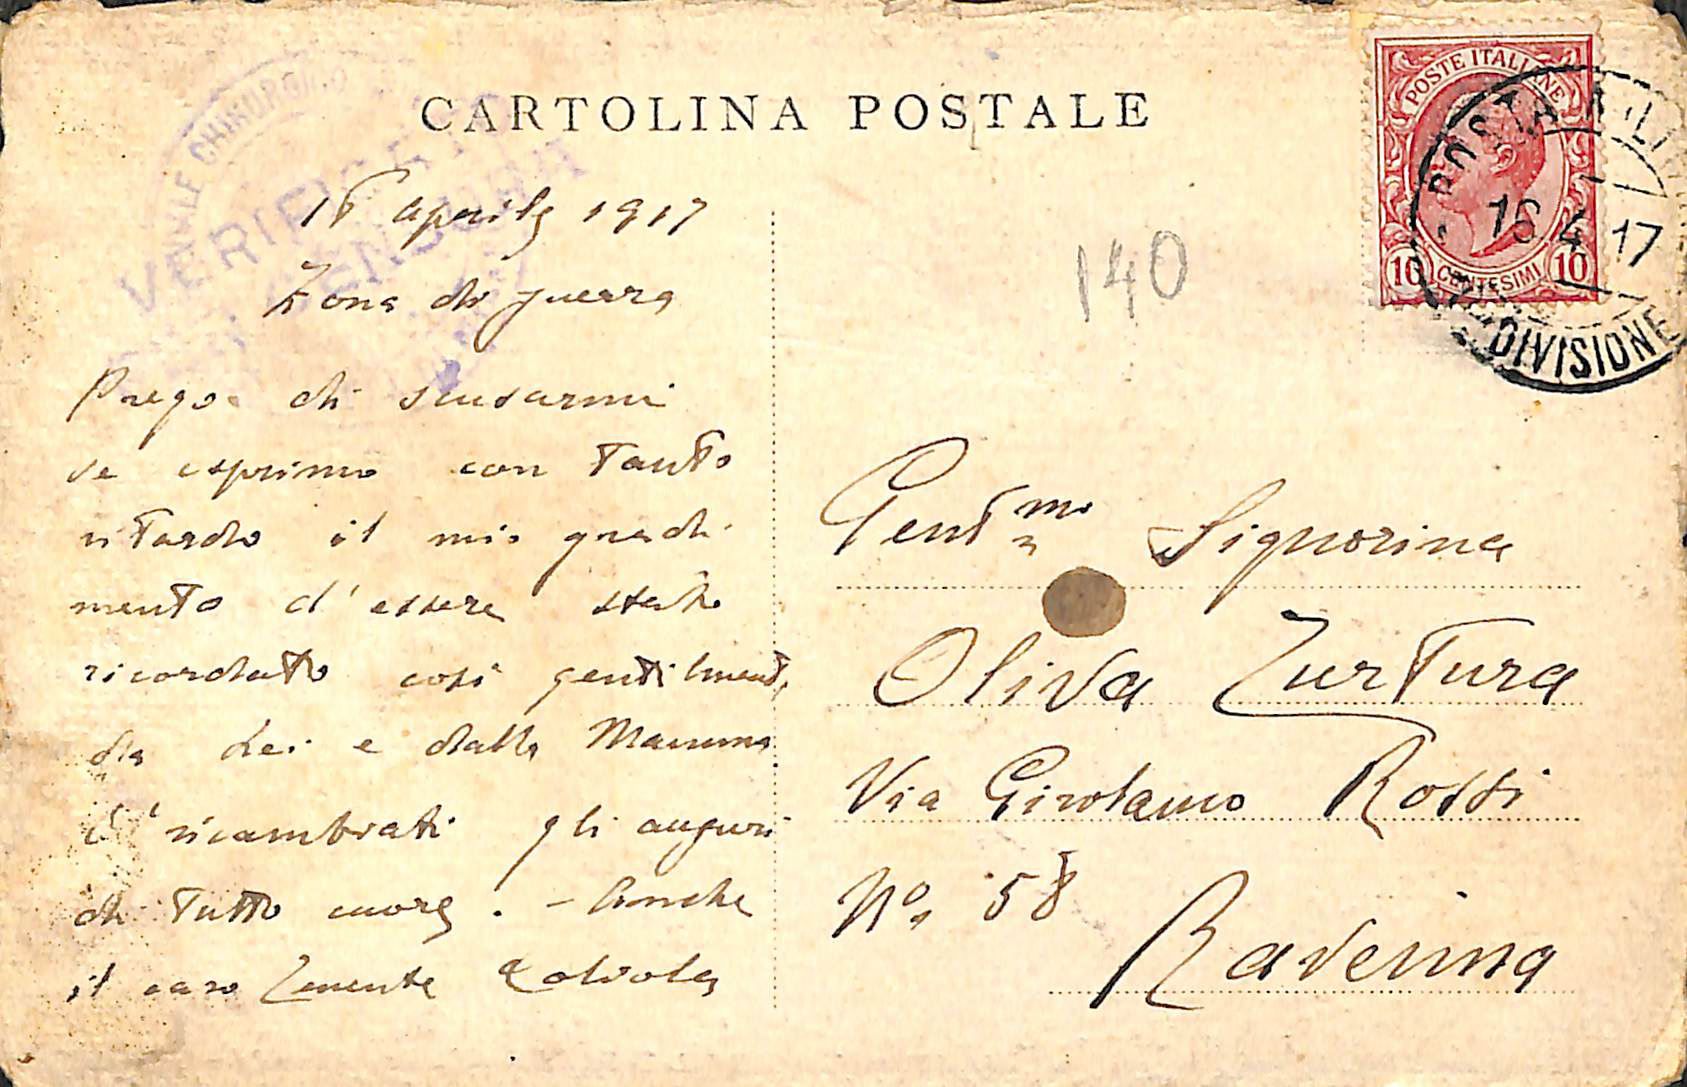 CARTOLINA POSTALE
VERIFICATO
CENSURA
POSTE ITALIANE
10 CENTESIMI 10
POSTA MILITARE
16 4 17
DIVISIONE
140
15 aprile 1917
Zona di guerra
Prego di scusarmi
se esprimo con tanto
ritardo il mio gradi
mento d'essere stato
ricordato così gentilment
da Lei e dalla Mamma
E' ricambrati gli auguri
di tutto cuore. - Anche
il caro Tenente
Gentma Signorina
Oliva Zurtura
Via Girolamo Rossi
No. 58
Ravenna